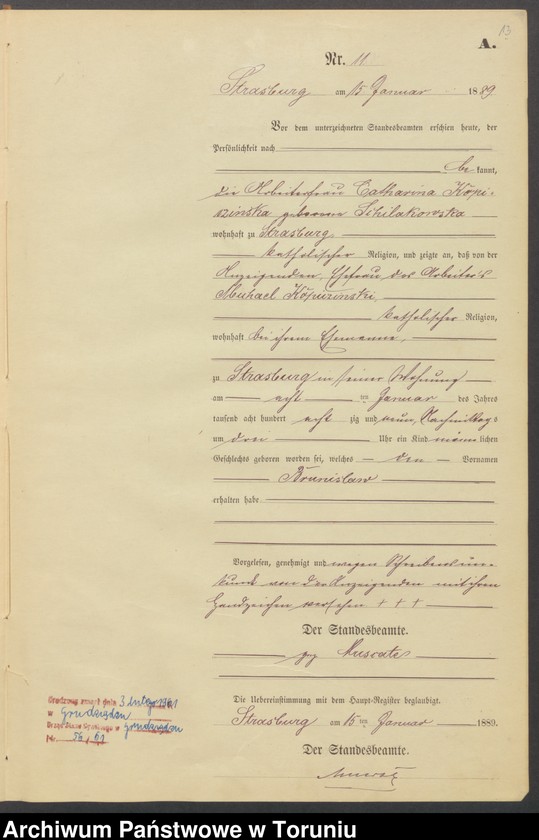 13
A.
Nr. 11
Strasburg am 15 Januar 1889
Vor dem unterzeichneten Standesbeamten erschien heute, der
Persönlichkeit nach
be kannt,
die Arbeiterfrau Catharina Kopi-
szinska geborene Schilakowska
wohnhaft zu Strasburg
katholischer Religion, und zeigte an, daß von der
Anzeigenden, Ehefrau des Arbeiters
Michael
katholischer Religion,
wohnhaft bei ihrem Ehemanne,
zu Strasburg in seiner Wohnung
am acht ten Januar des Jahres
tausend acht hundert acht zig und neun, Nachmittags
um drei Uhr ein Kind männ lichen
Geschlechts geboren worden sei, welches den Vornamen
Bronislaw
erhalten habe.
Vorgelesen, genehmigt und wegen Schreibensun-
kunde von der Anzeigenden mit ihrem
Handzeichen versehen + + +
Der Standesbeamte.
gez Muscate
Die Uebereinstimmung mit dem Haupt-Register beglaubigt.
Strasburg am 15 ten Januar 1889.
Der Standesbeamte.
zmarł dnia 3 lutego 1961
w Grudziądzu
Urząd Stanu Cywilnego w Grudziądzu
Nr. 56/61
Archiwum Państwowe w Toruniu